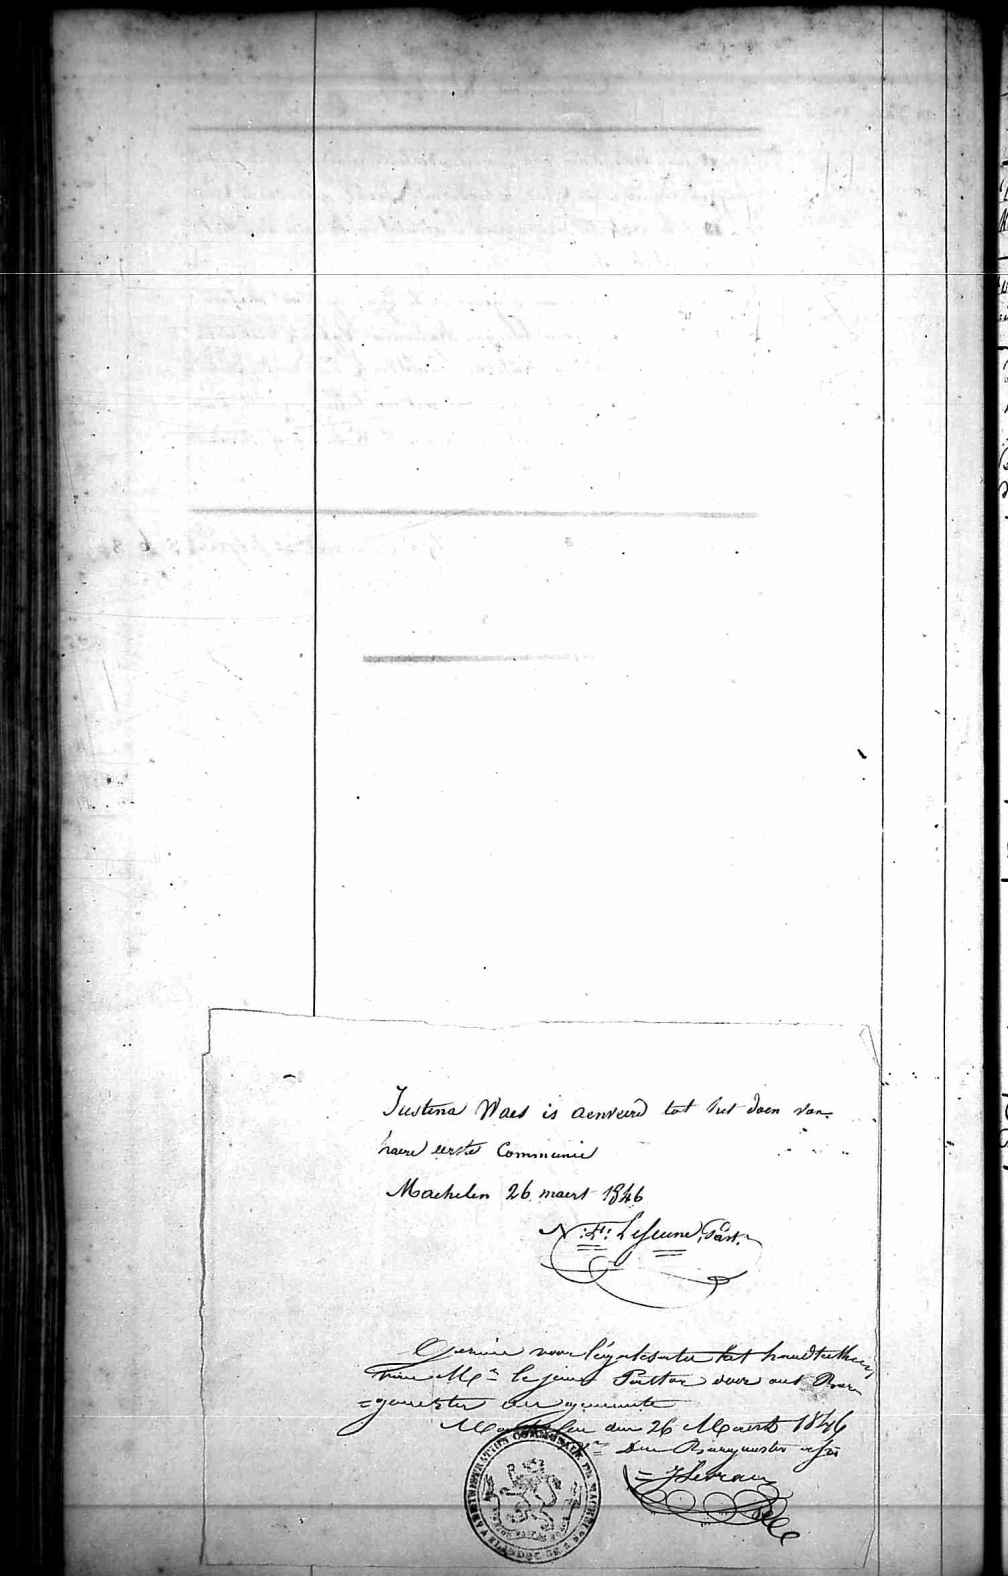 Justina Waes is aenveerd tot het doen van
haere eerste Communie
Machelen 26 maert 1846
N: F: LeJeune, Past.
Gezien voor legalisatie het handteeken
van Mr le jeune Pastor door ons Bur=
=gemeester der gemeente
Machelen den 26 Maert 1846
Den Burgemeester
ADMINISTRATION COMMUNALE DE MACHELEN